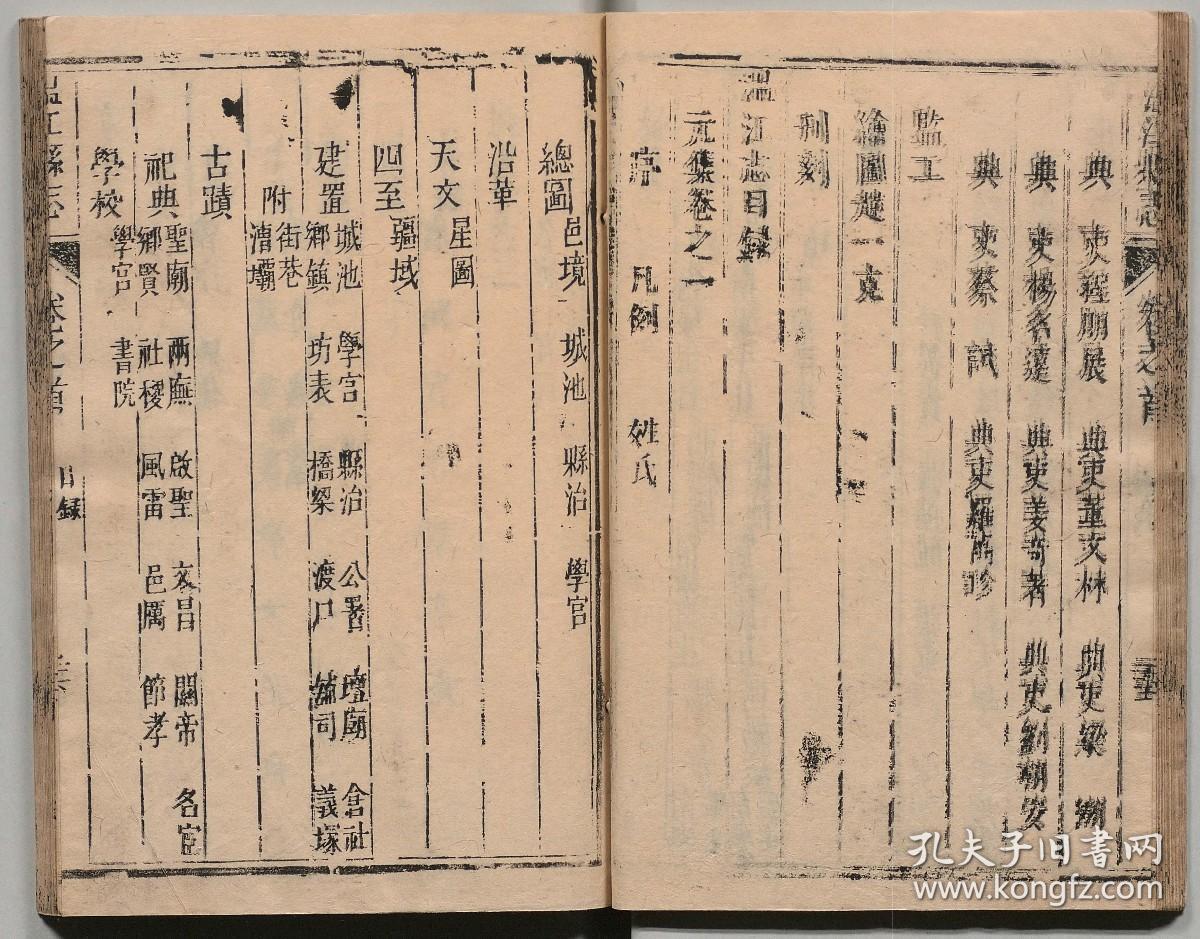 典 吏程朋展 典吏董文林 典吏梁 潮
典 吏楊名達 典吏姜奇著 典吏劉朝安
典 吏蔡 試 典吏羅
監工
繪圖楚一克
刊刻
溫江志目錄
元集卷之一
序 凡例 姓氏
總圖 邑境 城池 縣治 學宮
沿革
天文 星圖
四至 疆域
建置 城池 學宮 縣治 公署 壇廟 倉社
鄉鎮 坊表 橋梁 渡口 義塚
附 街巷
漕壩
古蹟
祀典 聖廟 兩廡 啟聖 文昌 關帝 名宦
鄉賢 社稷 風雷 邑厲 節孝
學校 學宮 書院
溫江縣志 卷之首 目錄
孔夫子旧书网
www.kongfz.com